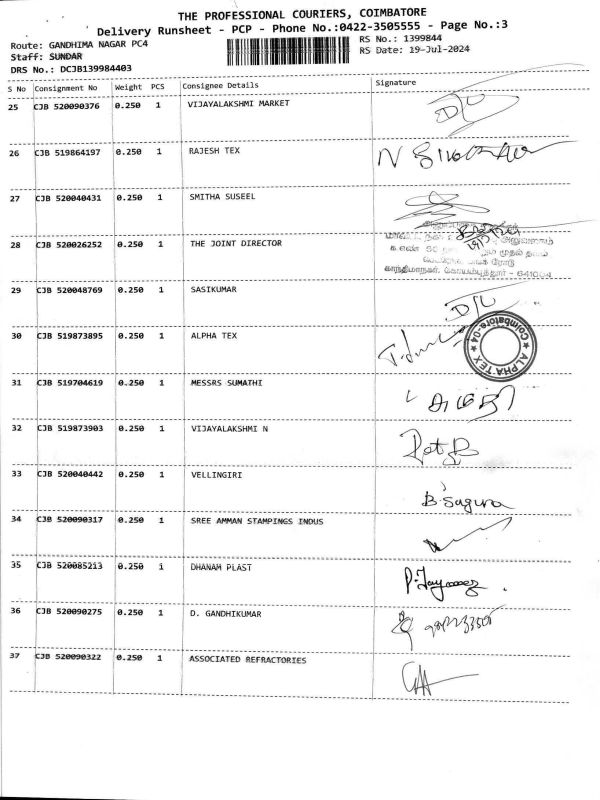 THE PROFESSIONAL COURIERS, COIMBATORE
Delivery Runsheet - PCP - Phone No.:0422-3505555 - Page No.:3
Route: GANDHIMA NAGAR PC4 RS No.: 1399844
Staff: SUNDAR RS Date: 19-Jul-2024
DRS No.: DCJB139984403
S No Consignment No Weight PCS Consignee Details Signature
25 CJB 520090376 0.250 1 VIJAYALAKSHMI MARKET
26 CJB 519864197 0.250 1 RAJESH TEX
27 CJB 520040431 0.250 1 SMITHA SUSEEL
28 CJB 520026252 0.250 1 THE JOINT DIRECTOR
காந்திமாநகர், கோயம்புத்தூர் - 641004
29 CJB 520048769 0.250 1 SASIKUMAR
30 CJB 519873895 0.250 1 ALPHA TEX
★ ALPHA TEX ★ Coimbatore-04
31 CJB 519704619 0.250 1 MESSRS SUMATHI
32 CJB 519873903 0.250 1 VIJAYALAKSHMI N
33 CJB 520040442 0.250 1 VELLINGIRI
34 CJB 520090317 0.250 1 SREE AMMAN STAMPINGS INDUS
35 CJB 520085213 0.250 1 DHANAM PLAST
36 CJB 520090275 0.250 1 D. GANDHIKUMAR
37 CJB 520090322 0.250 1 ASSOCIATED REFRACTORIES